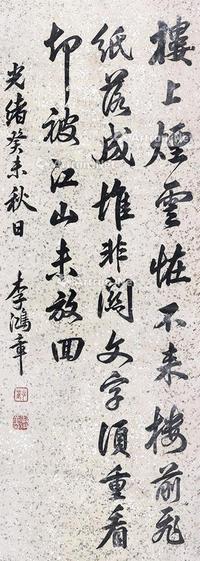 樓上煙雲怪不来樓前飛
紙落成堆非關文字須重看
却被江山未放囬
光緒癸未秋日
李鴻章